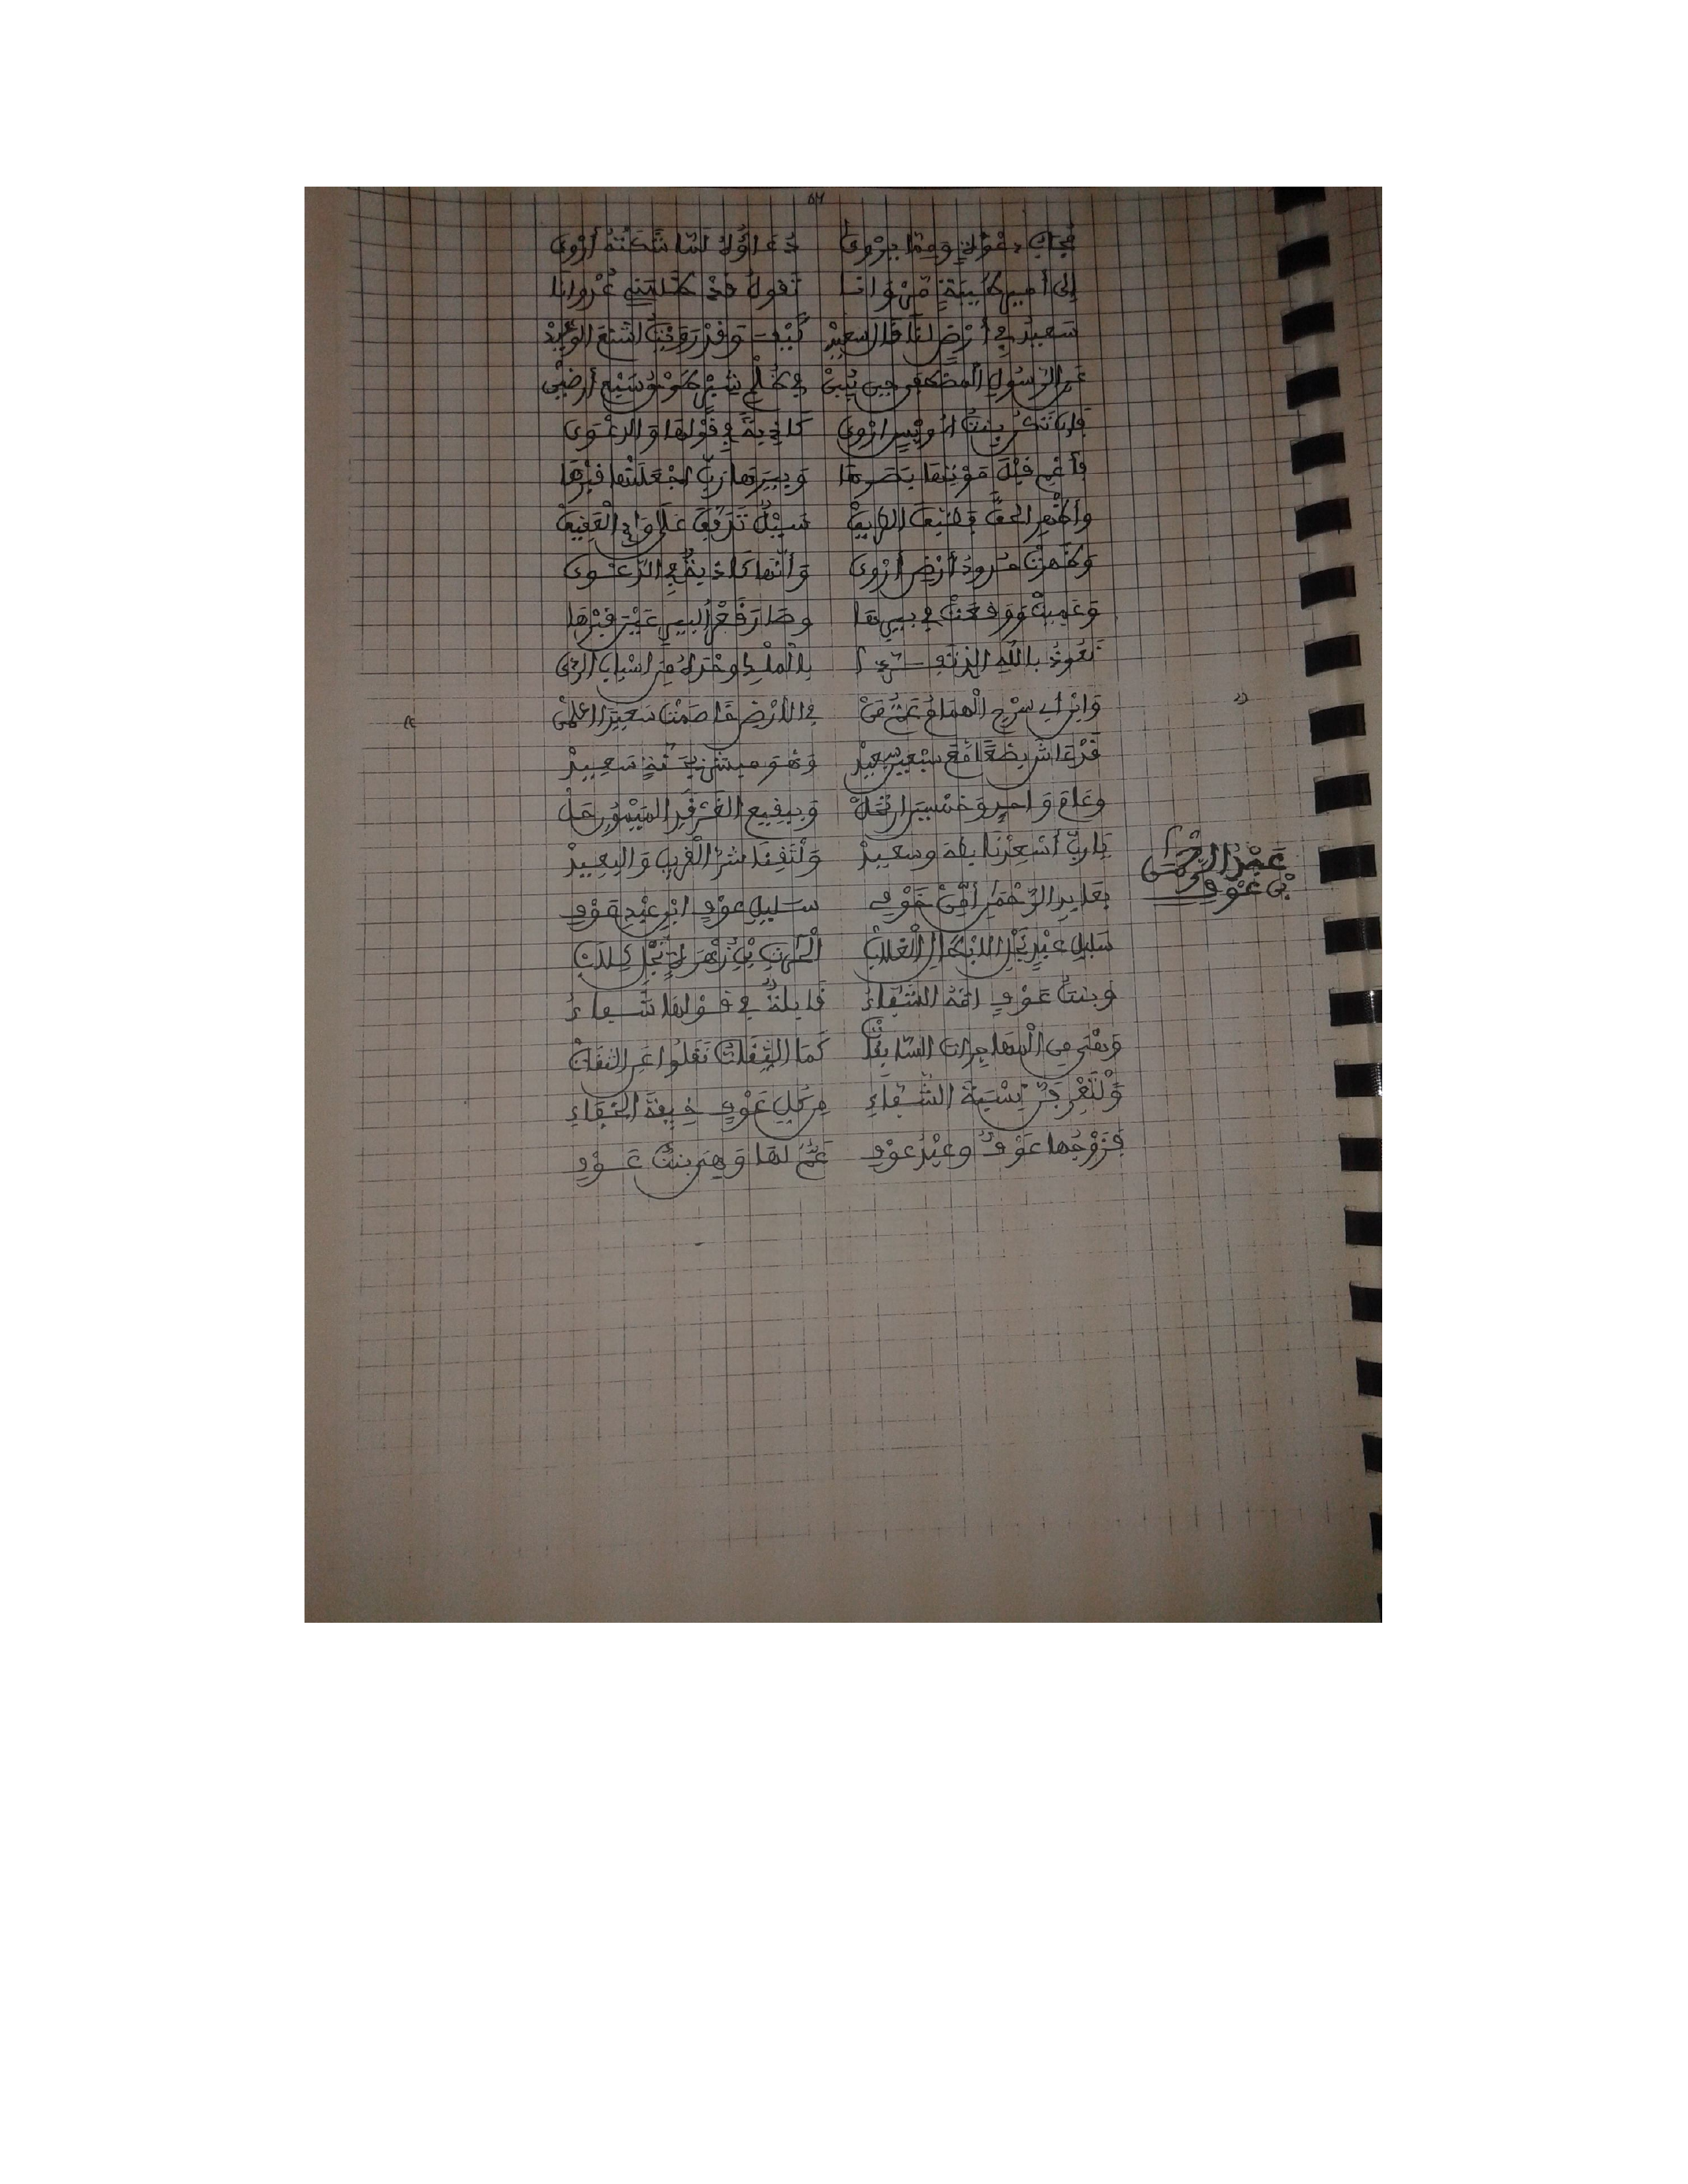 مجاب دعوة ومما يروى دعاؤه لما شكته أروى
إلى أمير طيبة مروانا تقول قد ظلمني عدوانا
سعيد في أرض لنا قال سعيد كيف وقد رويت أشنع الوعيد
عن الرسول المصطفى حين يبين في ظلم شبر طوق سبع أرضين
فإن تكن بنت أويس أروى كاذبة في قولها والدعوى
فأعم قبل موتها بصرها وبيرها رب اجعلنها قبرها
وأظهر الحق فضيق الطريق سيل تدفق على وادي العقيق
وظهرت حدود أرض أروى وأنها كاذبة في الدعوى
وعميت ووقعت في بيرها وصار قعر البير عين قبرها
نعوذ بالله الذي من اسباب الردى
وابن أبي سرح الهمام عن في الأرض خاصمت سعيدا اعلمن
قد عاش بضعا مع سبعين سعيد وهو ميت سعيد
وعام واحد وخمسين ارتحل وببقيع الغرقد الميمون حل
يا رب أسعدنا بطه وسعيد ولتقنا شر القريب والبعيد
عبد الرحمن
بن عوف
بعابد الرحمن أمن خوفي سليل عوف ابن عبد عوف
سليل عبد نجل الابطال الغلاب الحارث بن زهرة نجل كلاب
وبنت عوف امه الشفاء قايلة في قولها شفاء
وهي من المهاجرات السابقات كما الثقات نقلوا عن الثقات
ولتعرفن نسبة الشفاء من كل عوف خيفة الخفاء
فزوجها عوف وعبد عوف عم لها وهي بنت عوف